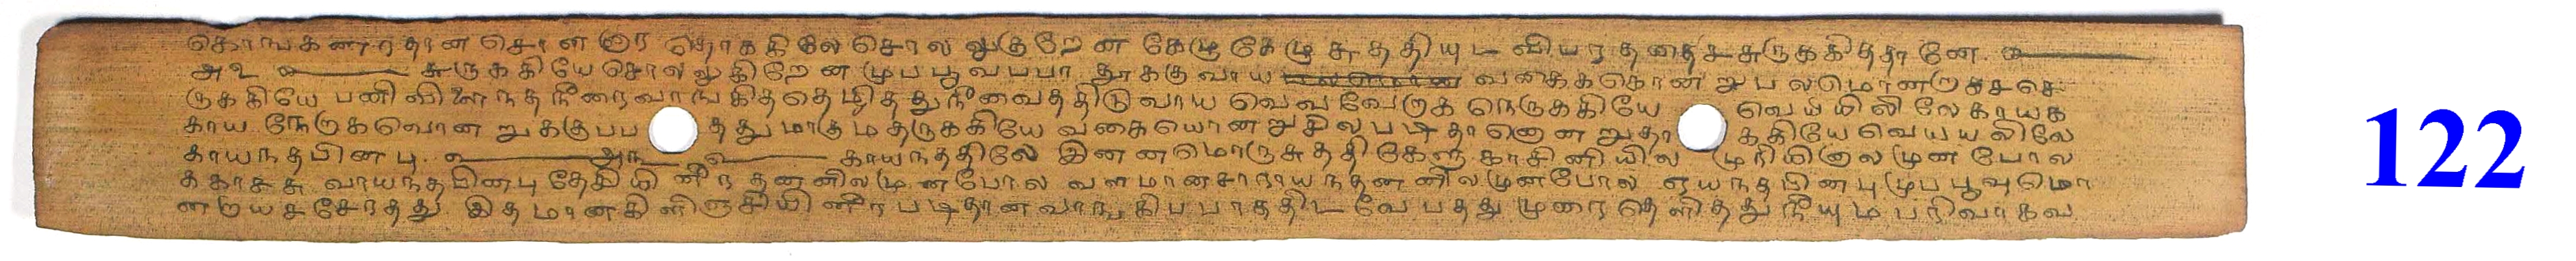 கொஙகணரதான சொனன குரு தொகதிகல சொலலுகுறேன கேழு கேழு சுததியுட வியரதனதைச சுருககிததானே
அ௨ சுருககியே சொலலுகிறேன முபபூவபபா தூககுவாய வகைககொன றுபலமொனறுசசெ
ருககியே பனிவிளைநதநீரைவாஙகித தெழிததுநீவைததிடுவாய வெவவேருக நெருககியே வெயயிலிலே காயக
காய நேருகவொன றுககுபப ததுமாகும தருககியே வகையொன றுசில படிதானொன றுதா ககியே வெயயலிலே
காயநதபினபு அ௩ காயநததிலே இனனமொருசுததி கேளு காசினியில முரியிகுல முன போல
ககாசசு வாயநதபினபு தேசியினீர தனனில முனபோல வளமானசாறாயநதனனில முனபோல ஏயநதபினபு முபபூவுமொ
னறாயச சேரதது இதமானகிளிஞசியினீர படிதான வாஙகிபபாகதிடவே பதது முறை தெளிதது நீயும பரிவாகவ
122